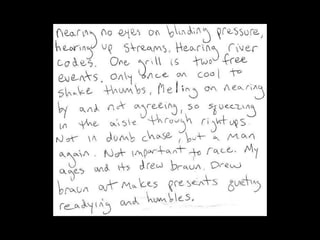 Nearing no eyes on blinding pressure,
hearing up streams. Hearing river
codes. One grill is two free
events. Only once on cool to
shake thumbs, Meling on nearing
by and not agreeing, so squeezing
in the aisle through right ups
Not in dumb chase, but a man
again. Not important to race. My
ages and its drew braun. Drew
braun art makes presents
readying and humbles.